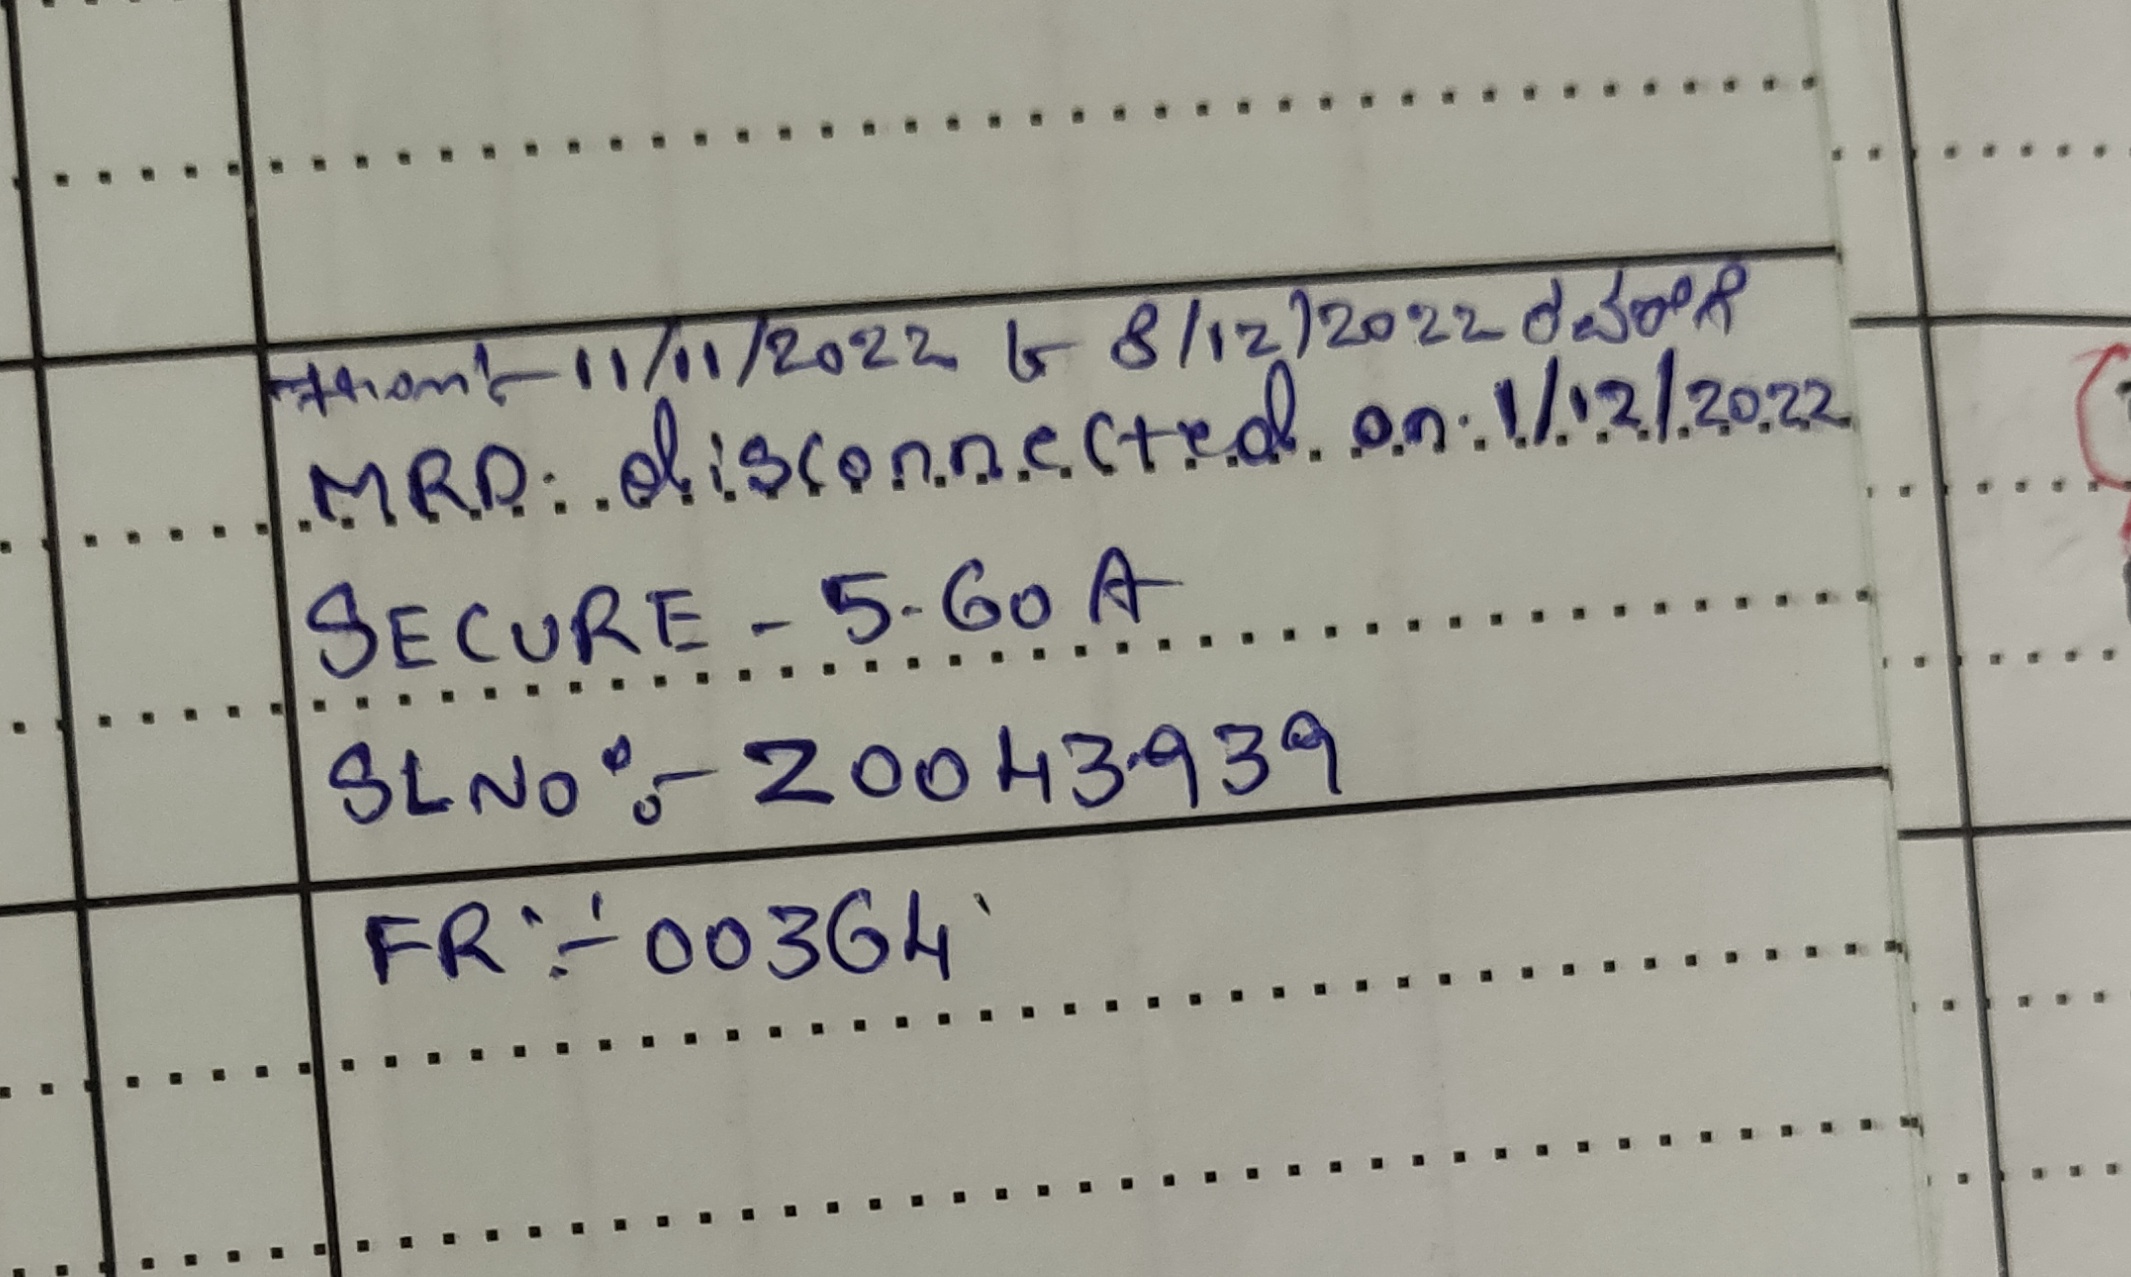 from:- 11/11/2022 to 8/12/2022 ರವರೆಗೆ
MRD: disconnected on: 1/12/2022
SECURE - 5-60 A
SLNO:- 20043939
FR:- 00364